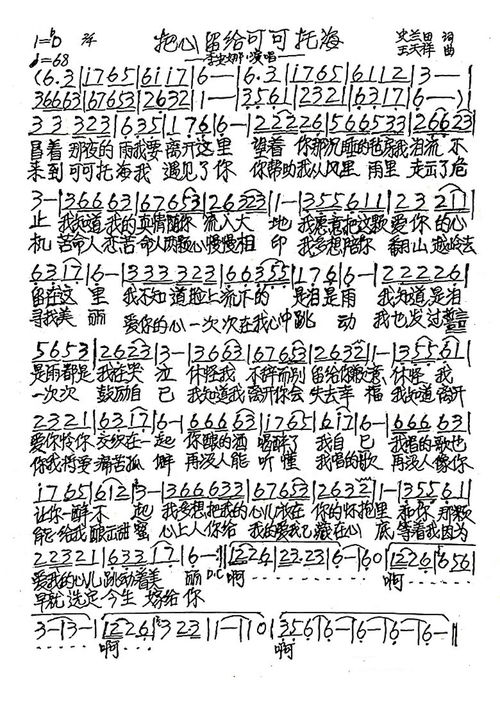 1=♭D 2/4 把心留给可可托海 史兰田 词
♩=68 —李安娜·演唱— 王天祥 曲
(6·3|1765|6117|6-|6·3|1765|6112|3-|
36663|67653|2632|1-|3561|2321|6317|6-)|
33323|635|176|6-|22226|566533|26623|
冒着那夜的雨我要离开这里 望着你那沉睡的毡房我泪流不
来到可可托海我遇见了你 你帮助我从风里雨里走示了危
3-|36663|67653|26323|1-|355611|23211|
止 我知道我的真情随你流入大地 我愿意把这颗爱你的心
机 苦命人恋苦命人两颗心慢慢相印 我多想陪你翻山越岭去
6317|6-|333323|66355|176|6-|222261|
留在这里 我不知道脸上流下的是泪是雨 我知道是泪
寻找美丽 爱你的心一次次在我心中跳动 我也发过誓言
5653|2623|3-|3663|67653|2632|1-|35561|
是雨都是我在哭泣 休怪我不辞而别留给你 休怪我
一次次鼓励自己 我知道我离开你会失去幸福 我知道离开
2321|6317|6-|66663|1765|617|6-|66663|
爱你怜你交织在一起 你酿的酒喝醉了我自己 我唱的歌也
你我将要痛苦孤僻 再没人能听懂我唱的歌 再没人像你
1765|612|3-|366633|67653|2632|1-|35561|
让你一醉不起 我多想把我的心儿 在你的怀抱里 和你那颗
能给我酿甜蜜 心上人你给我的爱我已藏在心底 等着我因为
22321|63317|6-|1226|2323|6-|60|1226|6561|
爱我的心儿跳动着美丽 D.C 啊 啊
早就选定今生嫁给你
3-|3-|1226|3323|1-|10|356|6-|6-|6-|6-||
啊 啊